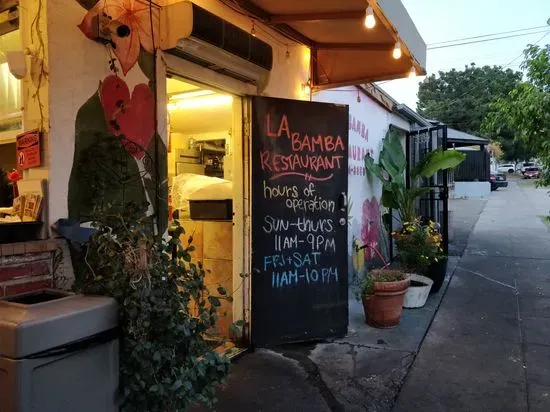 LA
BAMBA
RESTAURANT
hours of
operation
SUN-THURS
11AM-9PM
FRI+SAT
11AM-10PM
BAMBA